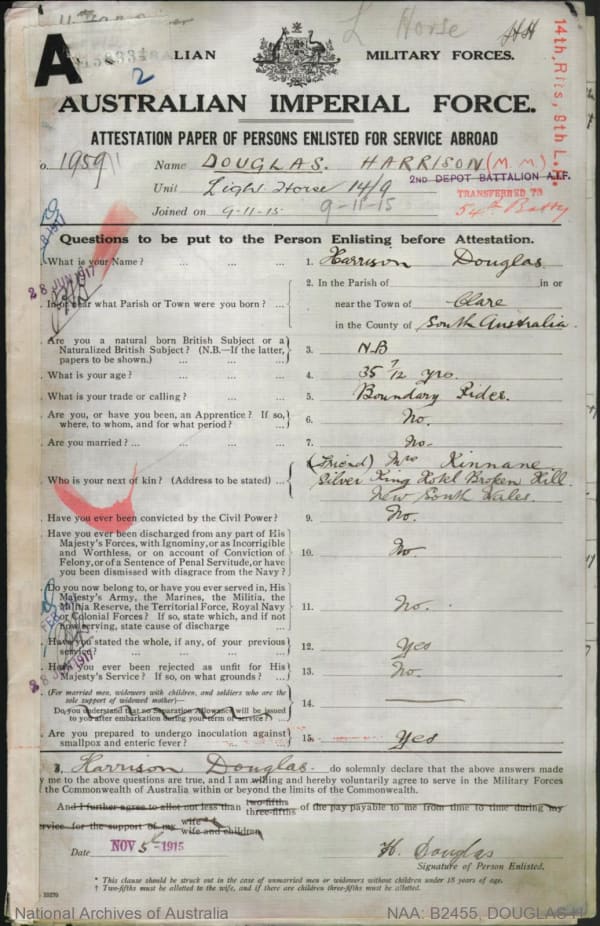 L Horse HH
A ALIAN MILITARY FORCES.
2
AUSTRALIAN IMPERIAL FORCE.
ATTESTATION PAPER OF PERSONS ENLISTED FOR SERVICE ABROAD
14th, Rfts, 9th L.
o. 1959 Name DOUGLAS. HARRISON (M. M.)
2ND DEPOT BATTALION A.I.F.
Unit Light Horse 14/9
TRANSFERRED TO
54th Batty
Joined on 9-11-15. 9-11-15
Questions to be put to the Person Enlisting before Attestation.
What is your Name? ... ... ... 1. Harrison Douglas
28 JUN 1917
2. In the Parish of in or
In or near what Parish or Town were you born? ... near the Town of Clare
in the County of South Australia.
Are you a natural born British Subject or a
Naturalized British Subject? (N.B.—If the latter, 3. N.B
papers to be shown.) ... ...
What is your age? ... ... ... 4. 35 7/12 yrs.
What is your trade or calling? ... ... 5. Boundary Rider.
Are you, or have you been, an Apprentice? If so,
where, to whom, and for what period? ... 6. No.
Are you married? ... ... ... 7. No.
(Friend) Mrs Kinnane
Who is your next of kin? (Address to be stated) ... Silver King Hotel Broken Hill
New South Wales.
Have you ever been convicted by the Civil Power? 9. No.
Have you ever been discharged from any part of His
Majesty's Forces, with Ignominy, or as Incorrigible
and Worthless, or on account of Conviction of 10. No
Felony, or of a Sentence of Penal Servitude, or have
you been dismissed with disgrace from the Navy?
Do you now belong to, or have you ever served in, His
Majesty's Army, the Marines, the Militia, the
Militia Reserve, the Territorial Force, Royal Navy 11. No.
or Colonial Forces? If so, state which, and if not
now serving, state cause of discharge ...
Have you stated the whole, if any, of your previous
service? ... ... 12. Yes
28 JUN 1917
Have you ever been rejected as unfit for His
Majesty's Service? If so, on what grounds? ... 13. No.
(For married men, widowers with children, and soldiers who are the
sole support of widowed mother)—
Do you understand that no Separation Allowance will be issued 14.
to you after embarkation during your term of service? ...
Are you prepared to undergo inoculation against
smallpox and enteric fever? ... 15. Yes
I, Harrison Douglas do solemnly declare that the above answers made
y me to the above questions are true, and I am willing and hereby voluntarily agree to serve in the Military Forces
f the Commonwealth of Australia within or beyond the limits of the Commonwealth.
And I further agree to allot not less than two-fifths three-fifths of the pay payable to me from time to time during my
rvice for the support of my wife wife and children
Date NOV 5 1915 H. Douglas
Signature of Person Enlisted.
* This clause should be struck out in the case of unmarried men or widowers without children under 18 years of age.
† Two-fifths must be allotted to the wife, and if there are children three-fifths must be allotted.
National Archives of Australia NAA: B2455, DOUGLAS H